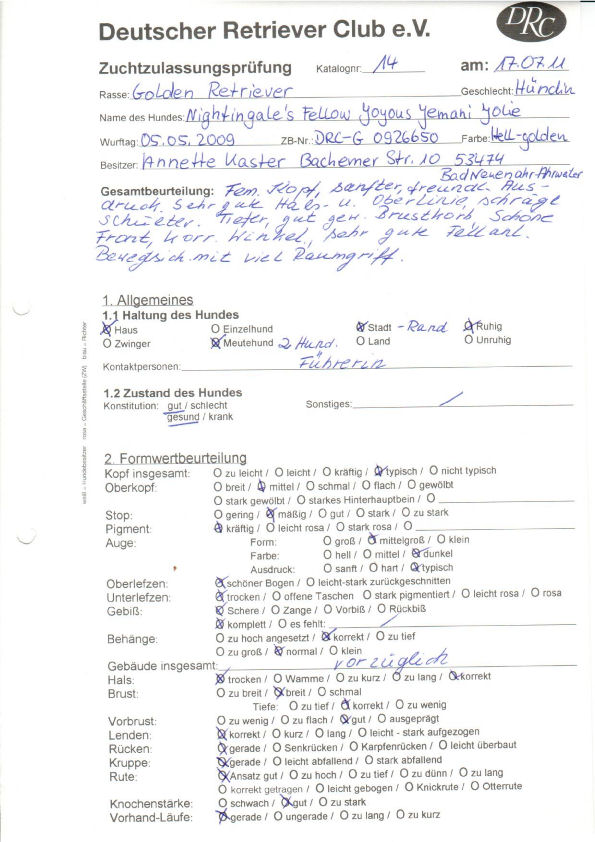 Deutscher Retriever Club e.V.
DRC
Zuchtzulassungsprüfung Katalognr: 14 am: 17.07.11
Rasse: Golden Retriever Geschlecht: Hündin
Name des Hundes: Nightingale's Fellow Yoyous Yemani Yolie
Wurftag: 05.05.2009 ZB-Nr.: DRC-G 0926650 Farbe: Hell-golden
Besitzer: Annette Kaster Bachemer Str. 10 53474
Bad Neuenahr-Ahrweiler
Gesamtbeurteilung: Fem. Kopf, sanfter, freundl. Aus-
druck. Sehr gute Hals- u. Oberlinie, schräge
Schulter. Tiefer, gut gew. Brustkorb. Schöne
Front, korr. Winkel., sehr gute Fellanl.
Bewegt sich mit viel Raumgriff.
1. Allgemeines
1.1 Haltung des Hundes
Haus O Einzelhund Stadt -Rand Ruhig
O Zwinger Meutehund 2 Hund. O Land O Unruhig
Kontaktpersonen: Führerin
1.2 Zustand des Hundes
Konstitution: gut / schlecht Sonstiges:
gesund / krank
weiß = Hundebesitzer rosa = Geschäftsstelle (ZW) blau = Richter
2. Formwertbeurteilung
Kopf insgesamt: O zu leicht / O leicht / O kräftig / O typisch / O nicht typisch
Oberkopf: O breit / O mittel / O schmal / O flach / O gewölbt
O stark gewölbt / O starkes Hinterhauptbein / O
Stop: O gering / O mäßig / O gut / O stark / O zu stark
Pigment: O kräftig / O leicht rosa / O stark rosa / O
Auge: Form: O groß / O mittelgroß / O klein
Farbe: O hell / O mittel / O dunkel
Ausdruck: O sanft / O hart / O typisch
Oberlefzen: O schöner Bogen / O leicht-stark zurückgeschnitten
Unterlefzen: O trocken / O offene Taschen O stark pigmentiert / O leicht rosa / O rosa
Gebiß: O Schere / O Zange / O Vorbiß / O Rückbiß
O komplett / O es fehlt:
Behänge: O zu hoch angesetzt / O korrekt / O zu tief
O zu groß / O normal / O klein
Gebäude insgesamt: vorzüglich
Hals: O trocken / O Wamme / O zu kurz / O zu lang / O korrekt
Brust: O zu breit / O breit / O schmal
Tiefe: O zu tief / O korrekt / O zu wenig
Vorbrust: O zu wenig / O zu flach / O gut / O ausgeprägt
Lenden: O korrekt / O kurz / O lang / O leicht - stark aufgezogen
Rücken: O gerade / O Senkrücken / O Karpfenrücken / O leicht überbaut
Kruppe: O gerade / O leicht abfallend / O stark abfallend
Rute: O Ansatz gut / O zu hoch / O zu tief / O zu dünn / O zu lang
O korrekt getragen / O leicht gebogen / O Knickrute / O Otterrute
Knochenstärke: O schwach / O gut / O zu stark
Vorhand-Läufe: O gerade / O ungerade / O zu lang / O zu kurz